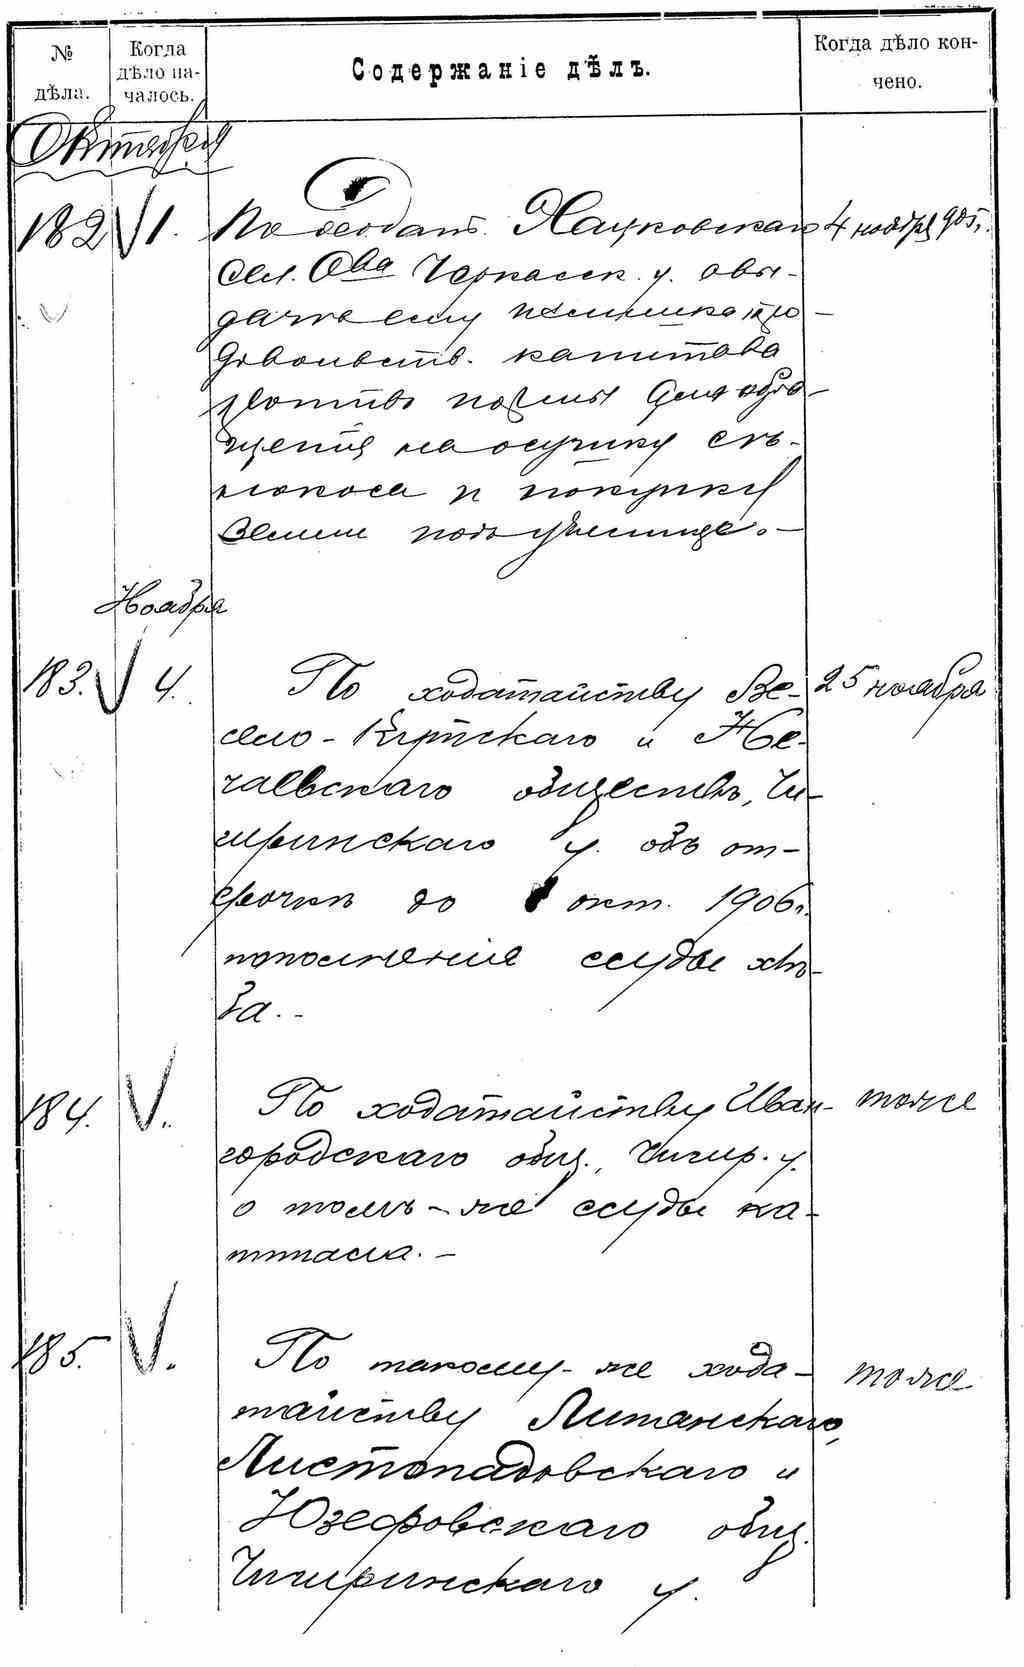 № дѣла. Когда дѣло началось. Содержаніе дѣлъ. Когда дѣло кончено.
Октября
182 1. По ходат. Хацковскаго 4 ноября 905 г.
Сел. Ова Черкасск. у. о вы-
дачѣ ему излишка про-
довольств. капитала
противъ нормы для обра-
щенія на осушку сѣ-
нокоса и покупку
земли подъ училище. —
Ноября
183. 4. По ходатайству Ве- 25 ноября
село-Кутскаго и Не-
чаевскаго обществъ, Чи-
гиринскаго у. объ от-
срочкѣ до 1 окт. 1906 г.
пополненія ссуды хлѣ-
ба. -
184. По ходатайству Иван- тоже
городскаго общ., Чигир. у.
о томъ-же ссуды ка-
питала. —
185. По такому-же хода- тоже
тайству Литанскаго,
Листопадовскаго и
Юзефовскаго общ.
Чигиринскаго у.